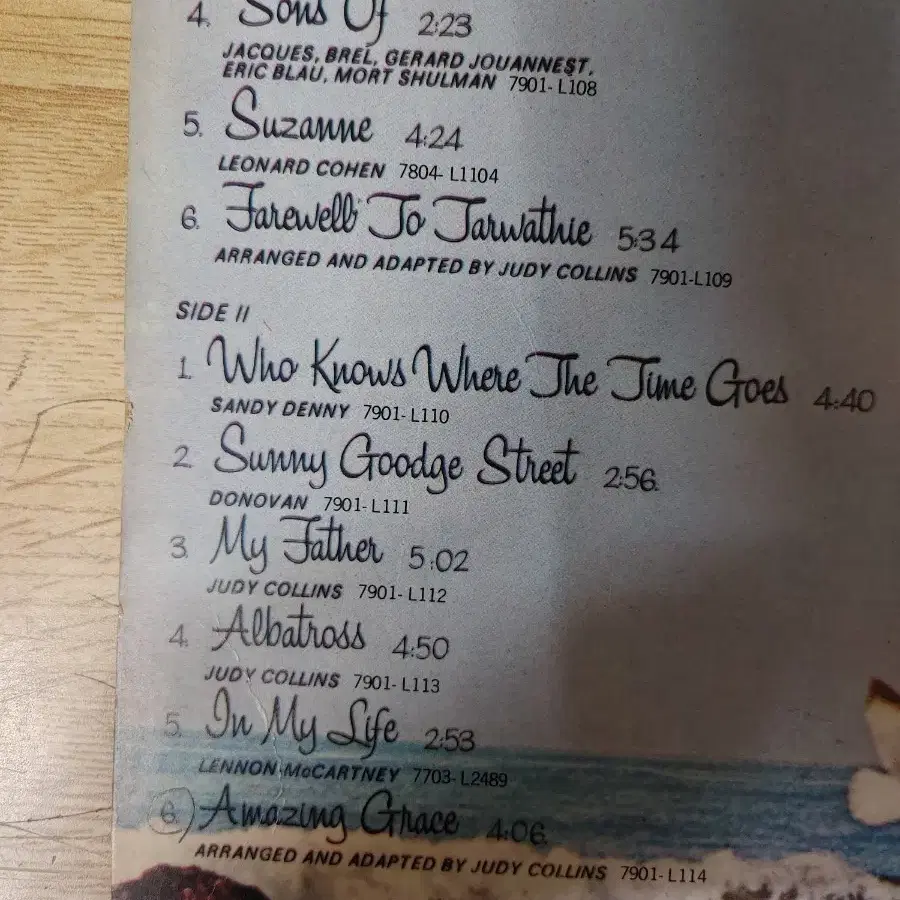 4. Sons Of 2:23
JACQUES, BREL, GERARD JOUANNEST,
ERIC BLAU, MORT SHULMAN 7901-L108
5. Suzanne 4:24
LEONARD COHEN 7804-L1104
6. Farewell To Tarwathie 5:34
ARRANGED AND ADAPTED BY JUDY COLLINS 7901-L109
SIDE II
1. Who Knows Where The Time Goes 4:40
SANDY DENNY 7901-L110
2. Sunny Goodge Street 2:56
DONOVAN 7901-L111
3. My Father 5:02
JUDY COLLINS 7901-L112
4. Albatross 4:50
JUDY COLLINS 7901-L113
5. In My Life 2:53
LENNON McCARTNEY 7703-L2489
6. Amazing Grace 4:06
ARRANGED AND ADAPTED BY JUDY COLLINS 7901-L114